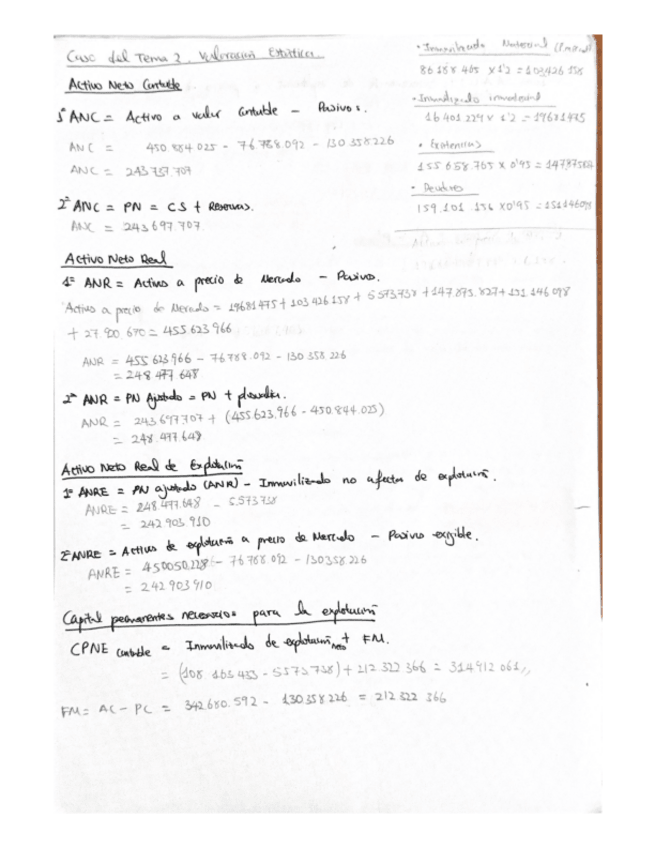 Caso del Tema 2. Valoración Estática
Activo Neto Contable
1º ANC = Activo a valor contable - Pasivos.
ANC = 450.844.025 - 76.788.092 - 130.358.226
ANC = 243.737.707
2º ANC = PN = CS + Reservas.
ANC = 243.697.707.
· Inmovilizado Material
86.188.465 x 1'2 = 103.426.158
· Inmovilizado inmaterial
16.401.229 x 1'2 = 19681475
· Existencias
155.658.765 x 0'95 =
· Deudores
159.101.156 x 0'95 = 151146098
Activo Neto Real
1º ANR = Activo a precio de Mercado - Pasivos.
Activo a precio de Mercado = 19681475 + 103.426.158 + 5.573.738 + 147.875.827 + 151.146.098
+ 27.920.670 = 455.623.966
ANR = 455.623.966 - 76.788.092 - 130.358.226
= 248.477.648
2º ANR = PN Ajustado = PN + plusvalías.
ANR = 243.697.707 + (455.623.966 - 450.844.025)
= 248.477.648
Activo Neto Real de Explotación
1º ANRE = PN ajustado (ANR) - Inmovilizado no afectos de explotación.
ANRE = 248.477.648 - 5.573.738
= 242.903.910
2º ANRE = Activos de explotación a precio de Mercado - Pasivo exigible.
ANRE = 450050.228 - 76.788.092 - 130358.226
= 242.903.910
Capital permanentes necesarios para la explotación
CPNE contable = Inmovilizado de explotación neto + FM.
= (108.163.433 - 5573.738) + 212.322.366 = 314.912.061
FM = AC - PC = 342.680.592 - 130.358.226 = 212.322.366